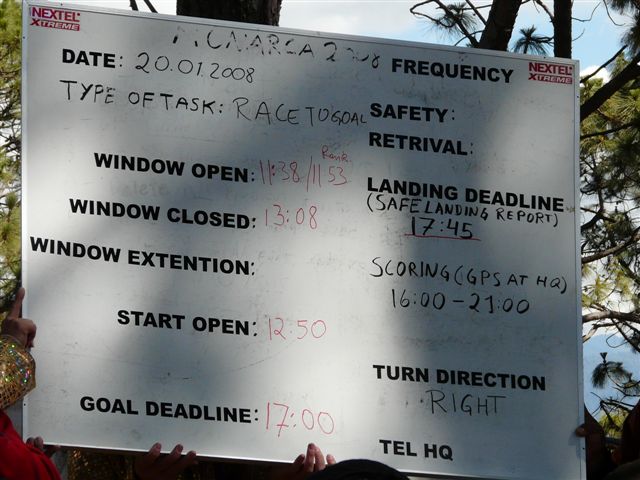 NEXTEL XTREME
2008
NEXTEL XTREME
DATE: 20.01.2008
TYPE OF TASK: RACE TO GOAL
WINDOW OPEN: 11:38/1153 Rank
WINDOW CLOSED: 13:08
WINDOW EXTENTION:
START OPEN: 12:50
GOAL DEADLINE: 17:00
FREQUENCY
SAFETY:
RETRIVAL:
LANDING DEADLINE
(SAFE LANDING REPORT)
17:45
SCORING (GPS AT HQ)
16:00-21:00
TURN DIRECTION
RIGHT
TEL HQ